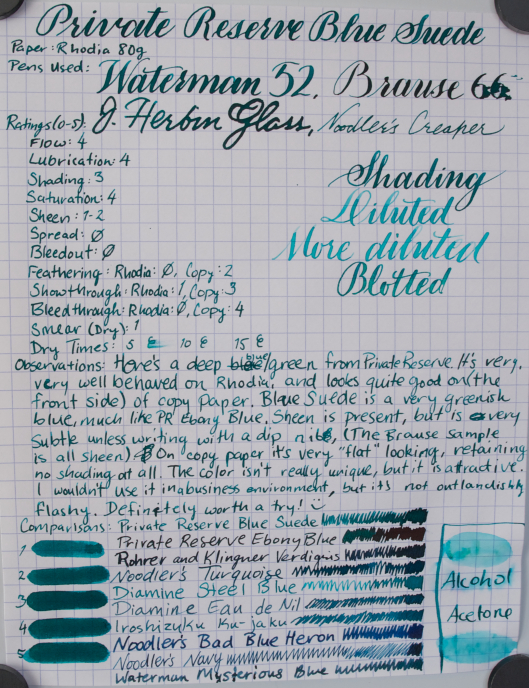 Private Reserve Blue Suede
Paper: Rhodia 80g
Pens Used:
Waterman 52, Brause 66
J. Herbin Glass, Noodler's Creaper
Ratings (0-5):
Flow: 4
Lubrication: 4
Shading: 3
Saturation: 4
Sheen: 1-2
Spread: Ø
Bleedout: Ø
Feathering: Rhodia: Ø, Copy: 2
Showthrough: Rhodia: 1, Copy: 3
Bleedthrough: Rhodia: Ø, Copy: 4
Smear (Dry): 1
Dry Times: 5 E 10 E 15 E
Shading
Diluted
More diluted
Blotted
Observations: Here's a deep blue/green from Private Reserve. It's very,
very well behaved on Rhodia, and looks quite good on (the
front side) of copy paper. Blue Suede is a very greenish
blue, much like PR Ebony Blue. Sheen is present, but is very
subtle unless writing with a dip nib, (The Brause sample
is all sheen) On copy paper it's very "flat" looking, retaining
no shading at all. The color isn't really unique, but it is attractive.
I wouldn't use it in a business environment, but it's not outlandishly
flashy. Definitely worth a try!
Comparisons: Private Reserve Blue Suede
Private Reserve Ebony Blue
Rohrer and Klingner Verdigris
Noodler's Turquoise
Diamine Steel Blue
Diamine Eau de Nil
Iroshizuku Ku-jaku
Noodler's Bad Blue Heron
Noodler's Navy
Waterman Mysterious Blue
1
2
3
4
5
Alcohol
Acetone